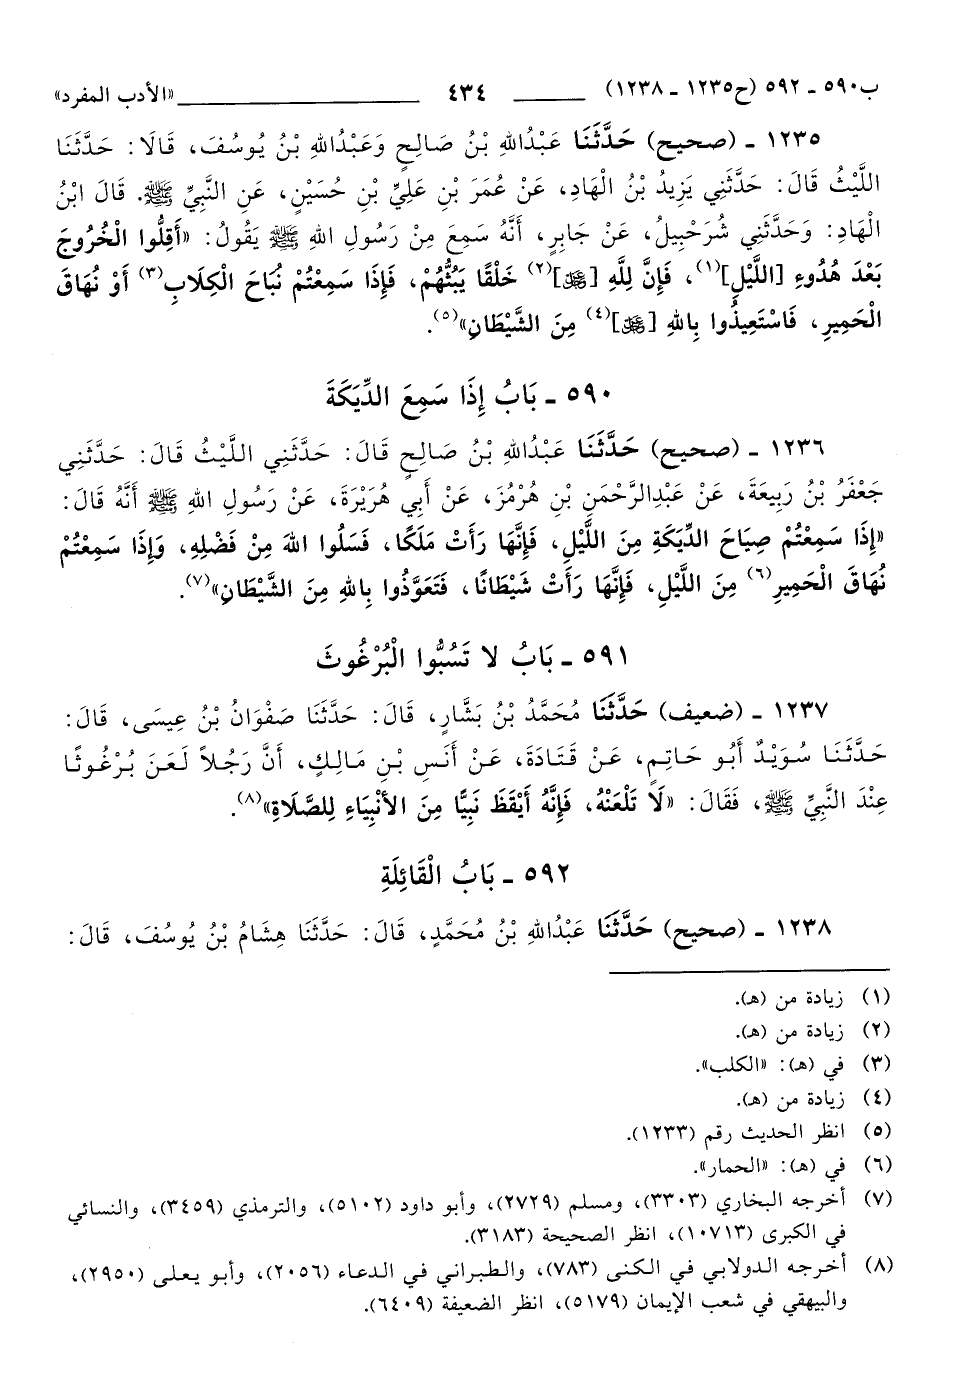 ب٥٩٠ ـ ٥٩٢ (ح١٢٣٥ ـ ١٢٣٨) ٤٣٤ «الأدب المفرد»
١٢٣٥ ـ (صحيح) حَدَّثَنَا عَبْدُاللهِ بْنُ صَالِحٍ وَعَبْدُاللهِ بْنُ يُوسُفَ، قَالَا: حَدَّثَنَا
اللَّيْثُ قَالَ: حَدَّثَنِي يَزِيدُ بْنُ الْهَادِ، عَنْ عُمَرَ بْنِ عَلِيِّ بْنِ حُسَيْنٍ، عَنِ النَّبِيِّ ﷺ. قَالَ ابْنُ
الْهَادِ: وَحَدَّثَنِي شُرَحْبِيلُ، عَنْ جَابِرٍ، أَنَّهُ سَمِعَ مِنْ رَسُولِ اللهِ ﷺ يَقُولُ: «أَقِلُّوا الْخُرُوجَ
بَعْدَ هُدُوءِ [اللَّيْلِ](١)، فَإِنَّ لِلَّهِ [ﷻ](٢) خَلْقًا يَبُثُّهُمْ، فَإِذَا سَمِعْتُمْ نُبَاحَ الْكِلَابِ(٣) أَوْ نُهَاقَ
الْحَمِيرِ، فَاسْتَعِيذُوا بِاللهِ [ﷻ](٤) مِنَ الشَّيْطَانِ»(٥).
٥٩٠ ـ بَابُ إِذَا سَمِعَ الدِّيَكَةَ
١٢٣٦ ـ (صحيح) حَدَّثَنَا عَبْدُاللهِ بْنُ صَالِحٍ قَالَ: حَدَّثَنِي اللَّيْثُ قَالَ: حَدَّثَنِي
جَعْفَرُ بْنُ رَبِيعَةَ، عَنْ عَبْدِالرَّحْمَنِ بْنِ هُرْمُزَ، عَنْ أَبِي هُرَيْرَةَ، عَنْ رَسُولِ اللهِ ﷺ أَنَّهُ قَالَ:
«إِذَا سَمِعْتُمْ صِيَاحَ الدِّيَكَةِ مِنَ اللَّيْلِ، فَإِنَّهَا رَأَتْ مَلَكًا، فَسَلُوا اللهَ مِنْ فَضْلِهِ، وَإِذَا سَمِعْتُمْ
نُهَاقَ الْحَمِيرِ(٦) مِنَ اللَّيْلِ، فَإِنَّهَا رَأَتْ شَيْطَانًا، فَتَعَوَّذُوا بِاللهِ مِنَ الشَّيْطَانِ»(٧).
٥٩١ ـ بَابُ لا تَسُبُّوا الْبُرْغُوثَ
١٢٣٧ ـ (ضعيف) حَدَّثَنَا مُحَمَّدُ بْنُ بَشَّارٍ، قَالَ: حَدَّثَنَا صَفْوَانُ بْنُ عِيسَى، قَالَ:
حَدَّثَنَا سُوَيْدٌ أَبُو حَاتِمٍ، عَنْ قَتَادَةَ، عَنْ أَنَسِ بْنِ مَالِكٍ، أَنَّ رَجُلاً لَعَنَ بُرْغُوثًا
عِنْدَ النَّبِيِّ ﷺ، فَقَالَ: «لَا تَلْعَنْهُ، فَإِنَّهُ أَيْقَظَ نَبِيًّا مِنَ الأَنْبِيَاءِ لِلصَّلَاةِ»(٨).
٥٩٢ ـ بَابُ الْقَائِلَةِ
١٢٣٨ ـ (صحيح) حَدَّثَنَا عَبْدُاللهِ بْنُ مُحَمَّدٍ، قَالَ: حَدَّثَنَا هِشَامُ بْنُ يُوسُفَ، قَالَ:
(١) زيادة من (هـ).
(٢) زيادة من (هـ).
(٣) في (هـ): «الكلب».
(٤) زيادة من (هـ).
(٥) انظر الحديث رقم (١٢٣٣).
(٦) في (هـ): «الحمار».
(٧) أخرجه البخاري (٣٣٠٣)، ومسلم (٢٧٢٩)، وأبو داود (٥١٠٢)، والترمذي (٣٤٥٩)، والنسائي
في الكبرى (١٠٧١٣)، انظر الصحيحة (٣١٨٣).
(٨) أخرجه الدولابي في الكنى (٧٨٣)، والطبراني في الدعاء (٢٠٥٦)، وأبو يعلى (٢٩٥٠)،
والبيهقي في شعب الإيمان (٥١٧٩)، انظر الضعيفة (٦٤٠٩).